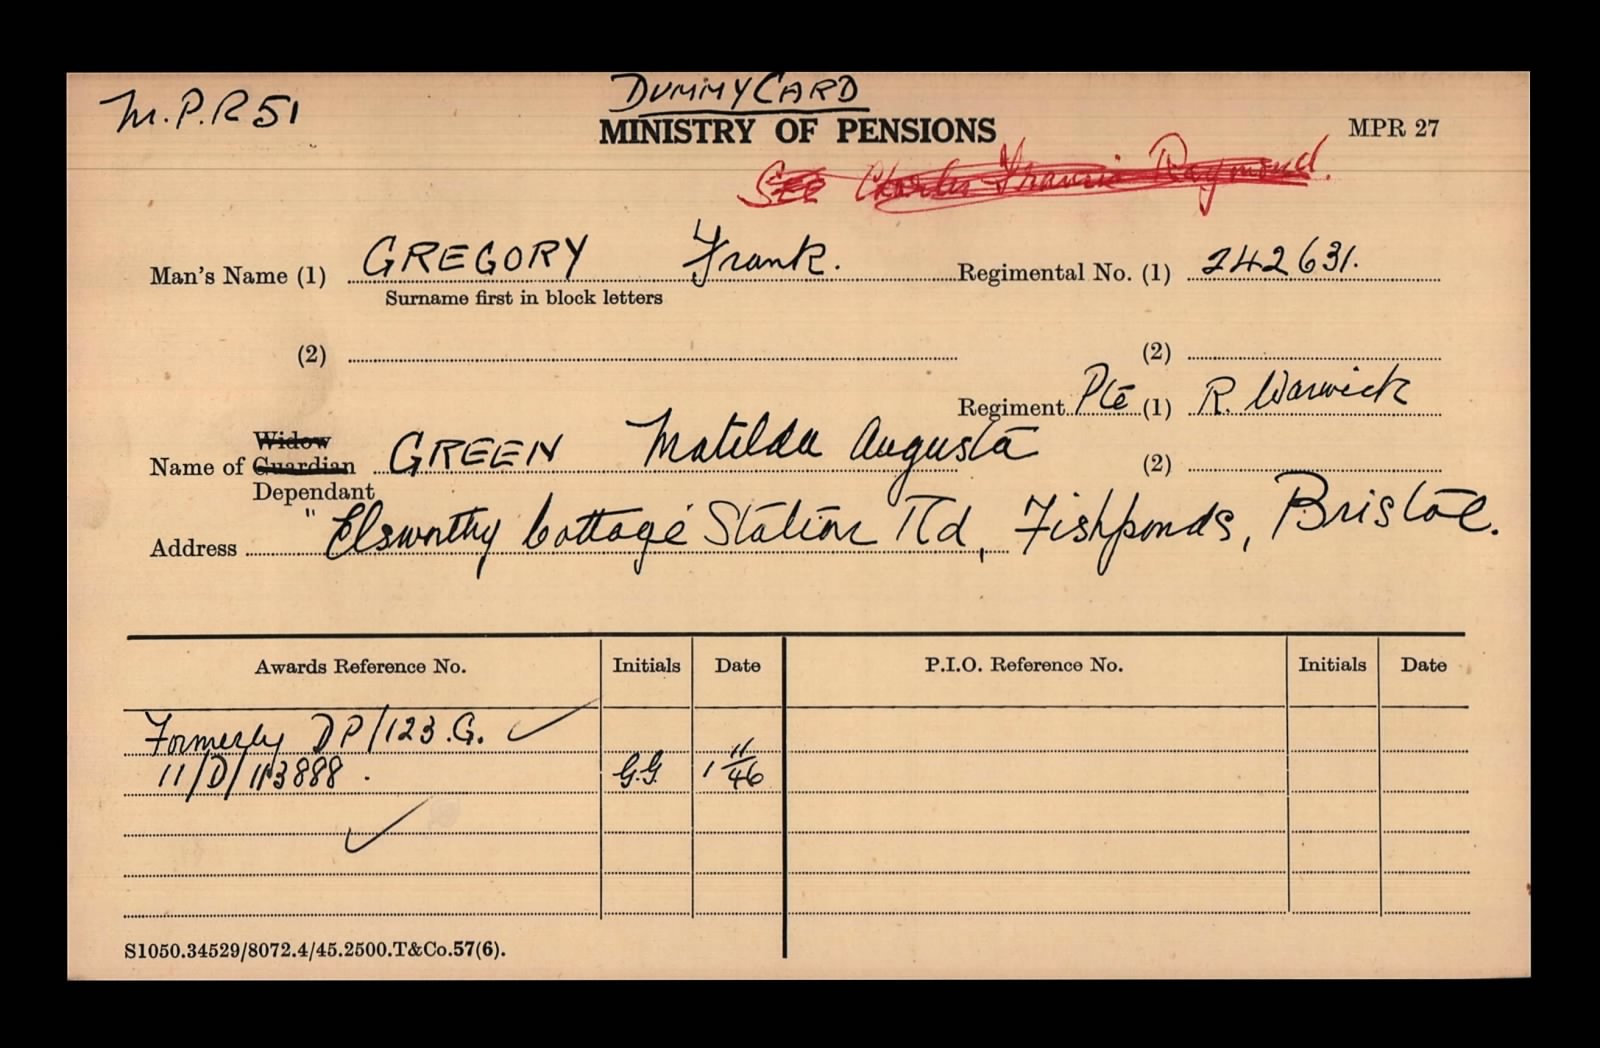 M.P.R 51
DUMMY CARD
MINISTRY OF PENSIONS
MPR 27
See Charles Francis Raymond.
Man's Name (1) GREGORY Frank. Regimental No. (1) 242631.
Surname first in block letters
(2) (2)
Regiment Pte (1) R. Warwick
Widow
Name of Guardian GREEN Matilda Augusta (2)
Dependant
Address "Elsworthy Cottage" Station Rd, Fishponds, Bristol.
Awards Reference No. Initials Date P.I.O. Reference No. Initials Date
Formerly DP/123.G.
11/D/113888. G.G. 1 11/46
S1050.34529/8072.4/45.2500.T&Co.57(6).